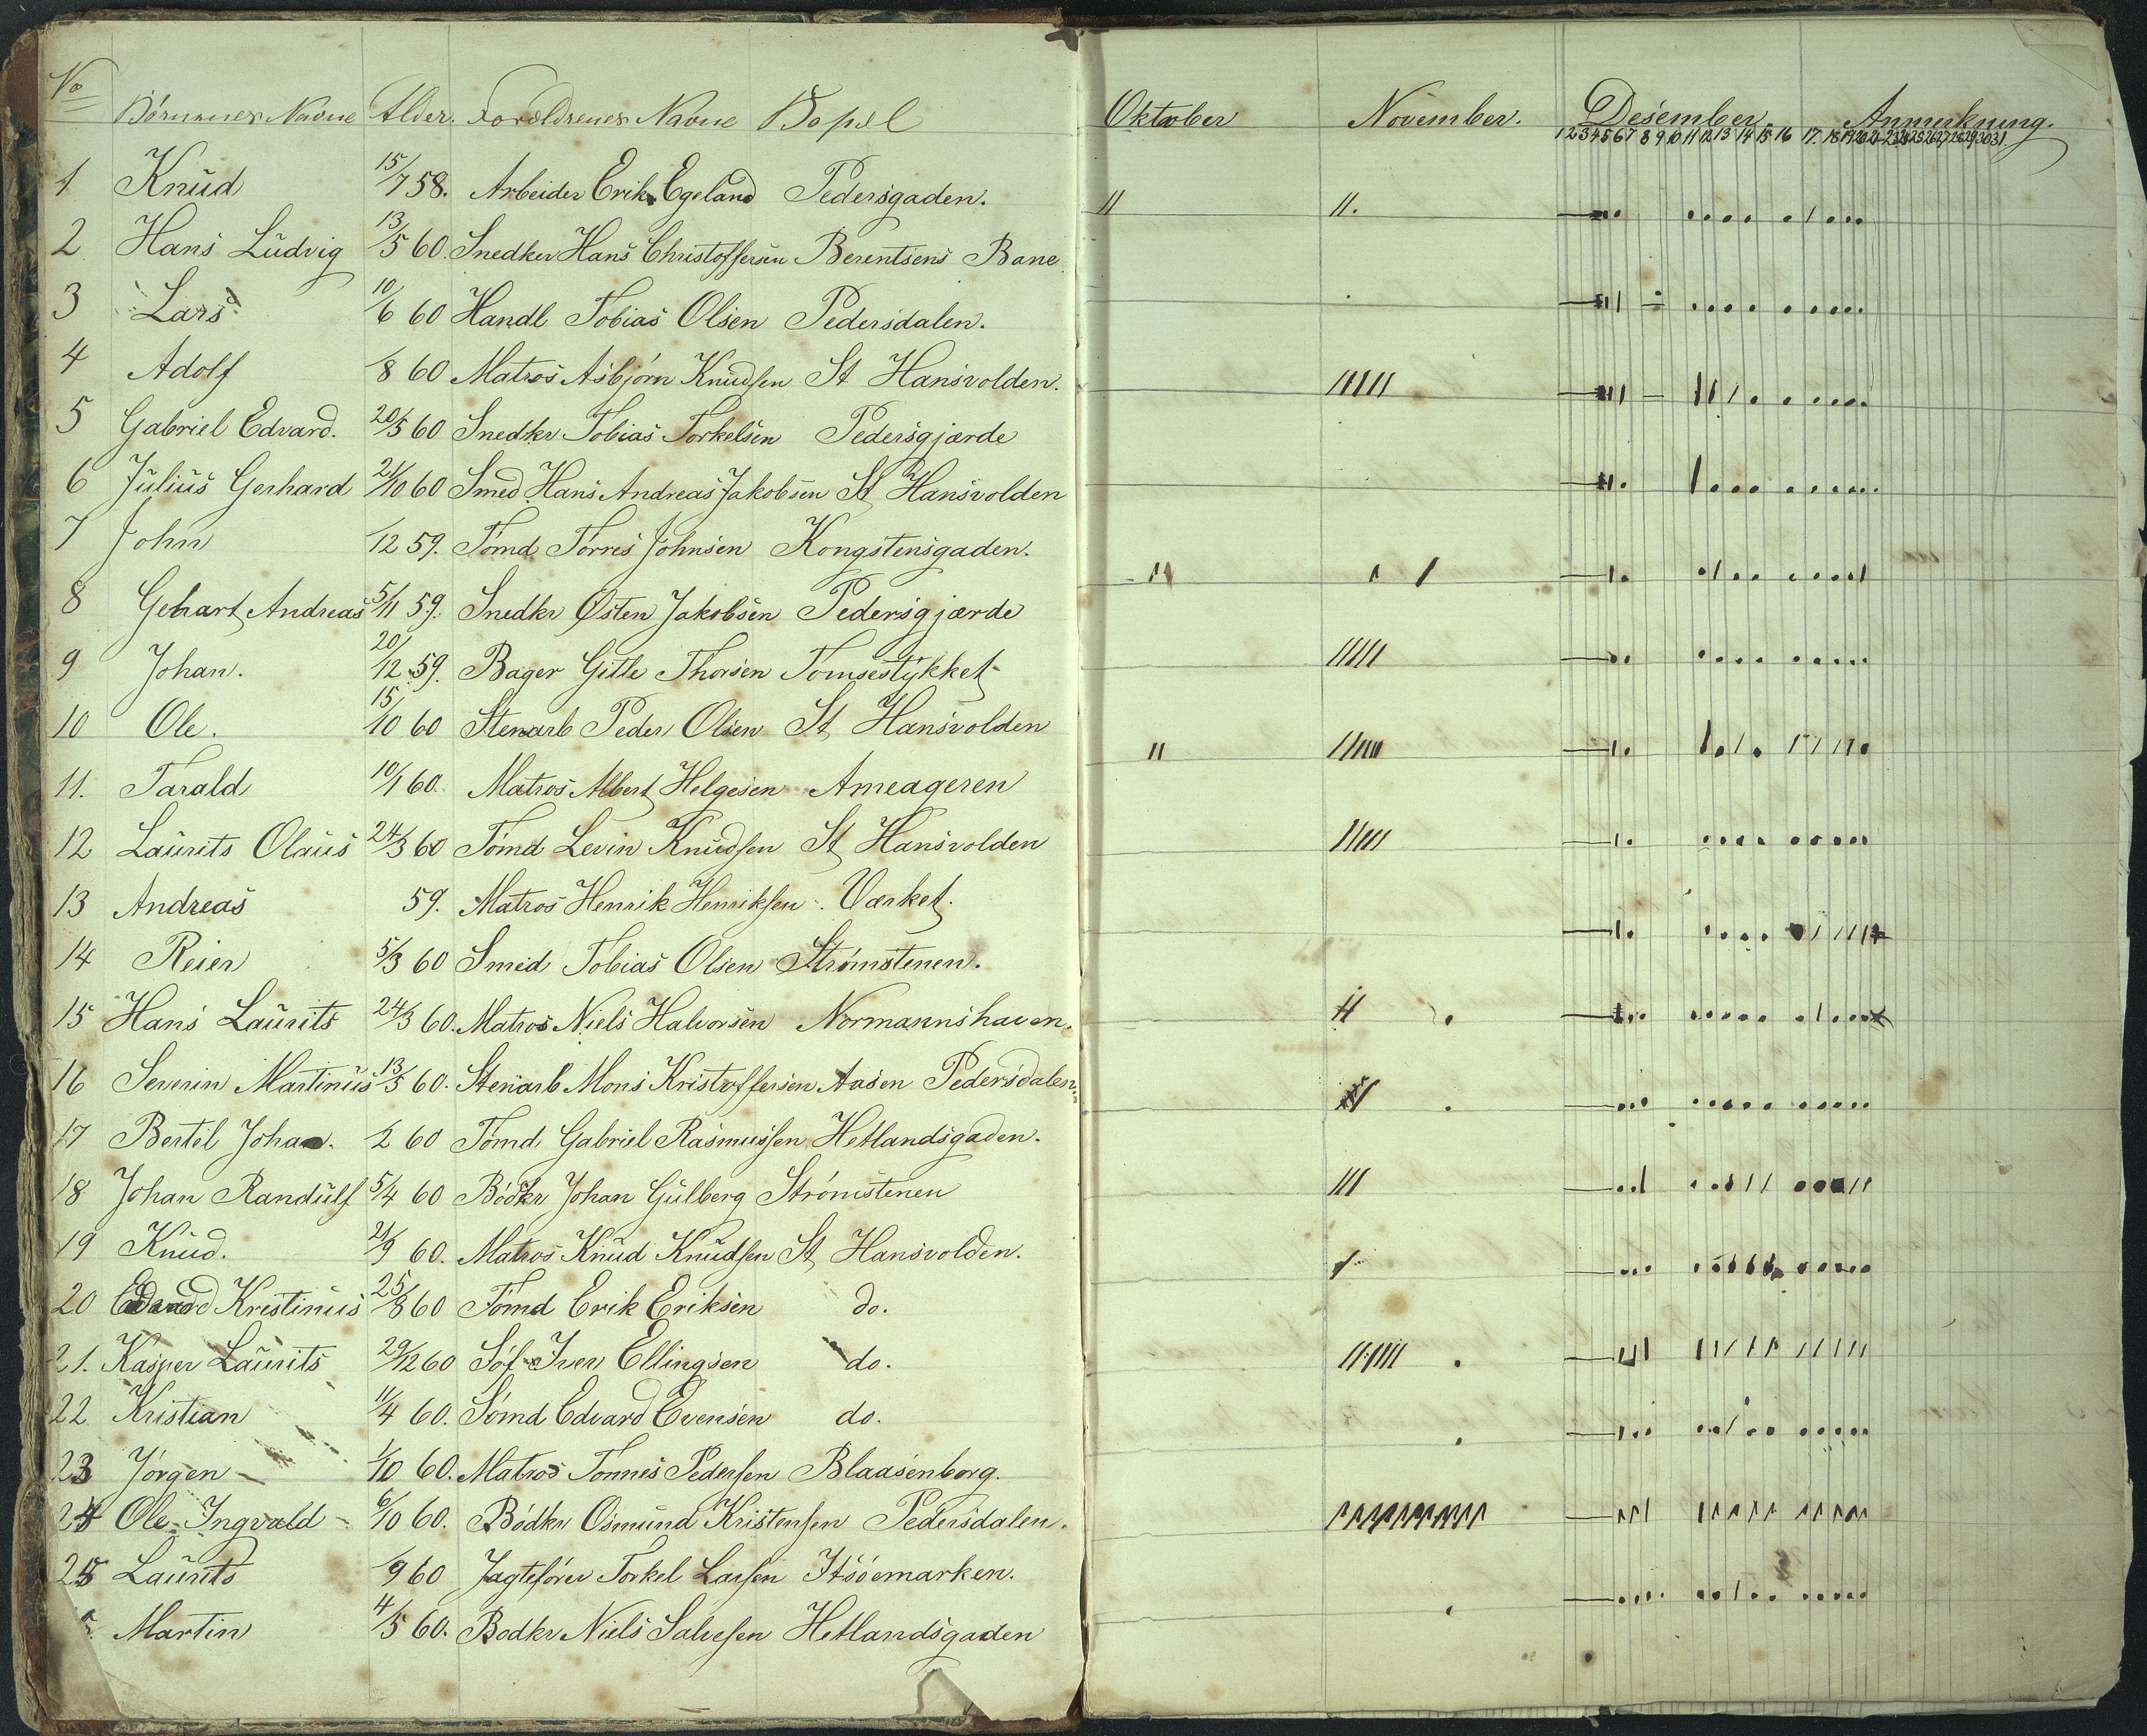 No Börnenes Navne Alder. Forældrenes Navne Bopæl
1 Knud 15/7 58. Arbeider Erik Egeland Pedersgaden.
2 Hans Ludvig 13/5 60. Snedker Hans Christoffersen Berentsens Bane
3 Lars 10/6 60 Handl Tobias Olsen Pedersdalen.
4 Adolf /8 60 Matros Asbjörn Knudsen St Hansvolden.
5 Gabriel Edvard. 20/5 60 Snedkr Tobias Torkelsen Pedersgjærde
6 Julius Gerhard 21/10 60 Smed Hans Andreas Jakobsen St Hansvolden
7 John /12 59. Tömd Törres Johnsen Kongstensgaden.
8 Gehart Andreas 5/11 59. Snedkr Østen Jakobsen Pedersgjærde
9 Johan. 20/12 59. Bager Gitle Thorsen Tomsestykket
10 Ole. 15/10 60 Stenarb Peder Olsen St Hansvolden
11. Tarald 10/1 60. Matros Albert Helgesen Ameageren
12 Laurits Olaus 24/3 60 Tömd Levin Knudsen St Hansvolden
13 Andreas 59. Matros Henrik Henriksen Værket.
14 Reier 5/3 60 Smed Tobias Olsen Strömstenen.
15 Hans Laurits 24/3 60. Matros Niels Halvorsen Normannshaven.
16 Severin Martinius 13/5 60. Stenarb Mons Kristoffersen Aasen Pedersdalen.
17 Bertel Johan. /2 60 Tömd Gabriel Rasmussen Hetlandsgaden.
18 Johan Randulf 5/4 60 Bödkr Johan Gulberg Strömstenen
19 Knud. 21/9 60. Matros Knud Knudsen St Hansvolden.
20 Edvard Kristinius 25/8 60 Tömd Erik Eriksen do.
21. Kasper Laurits 29/12 60 Söf Iver Ellingsen do.
22 Kristian 11/4 60. Sömd Edvard Evensen do.
23 Jörgen 1/10 60. Matros Tönnes Pedersen Blaasenborg.
24 Ole Ingvald 6/10 60. Bödkr Osmund Kristensen Pedersdalen.
25 Laurits /9 60 Jagteförer Torkel Larsen
Martin 4/5 60. Bödkr Niels Salvesen Hetlandsgaden
Oktober November. Desember Anmerkning.
1 2 3 4 5 6 7 8 9 10 11 12 13 14 15 16 17. 18 19 20 21 22 23 24 25 26 27 28 29 30 31.